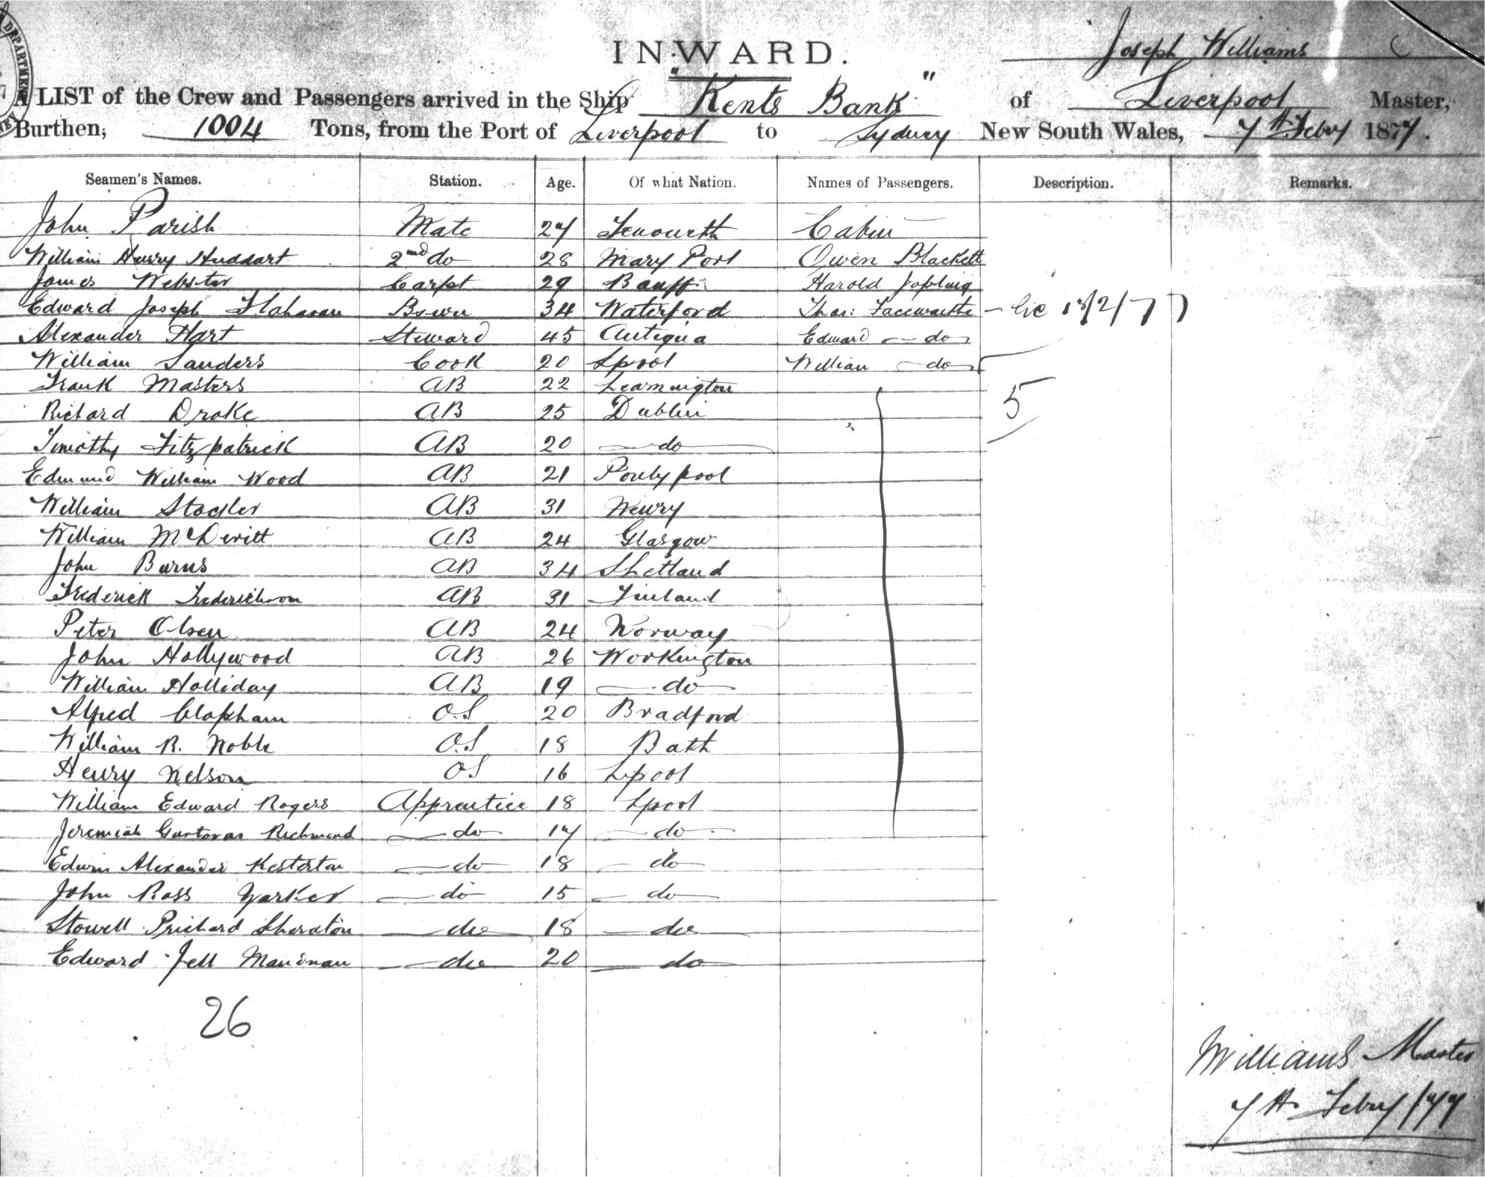 INWARD.
Joseph Williams
A LIST of the Crew and Passengers arrived in the Ship "Kents Bank" of Liverpool Master,
Burthen, 1004 Tons, from the Port of Liverpool to Sydney New South Wales, 7th Feby 1877.
Seamen's Names. Station. Age. Of what Nation. Names of Passengers. Description. Remarks.
John Parish Mate 27 Cabin
William Henry Huddart 2nd do 28 Mary Port Owen Blackett
James Webster Carpt 29 Banff Harold Jopling
Edward Joseph Flahavan 34 Waterford Thos: 
Alexander Hart Steward 45 Antigua Edward do
William Sanders Cook 20 Lpool William do
Frank Masters AB 22 Leamington
Richard Drake AB 25 Dublin 5
Timothy Fitzpatrick AB 20 do
Edmund William Wood AB 21
William AB 31 Newry
William McDevitt AB 24 Glasgow
John Burns AB 34 Shetland
Frederick Frederickson AB 31 Finland
Peter Olsen AB 24 Norway
John Hollywood AB 26 Workington
William Holliday AB 19 do
Alfred Clapham O.S 20 Bradford
William R. Noble O.S 18 Bath
Henry Nelson OS 16 Lpool
William Edward Rogers Apprentice 18 Lpool
Jeremiah Gustavus Richmond do 17 do
Edwin Alexander Kesterton do 18 do
John Ross Yarker do 15 do
Stowell Prichard Sheraton do 18 do
Edward Jell do 20 do
26
Williams Master
7th Feby 1877